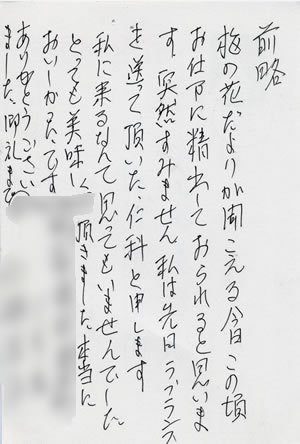 前略
梅の花だよりが聞こえる今日この頃
お仕事に精出しておられると思いま
す。突然すみません 私は先日ラフランス
を送って頂いた、仁科と申します
私に来るなんて思ってもいませんでした。
とっても美味しく頂きました 本当に
おいしかったです
ありがとうござい
ました、御礼まで